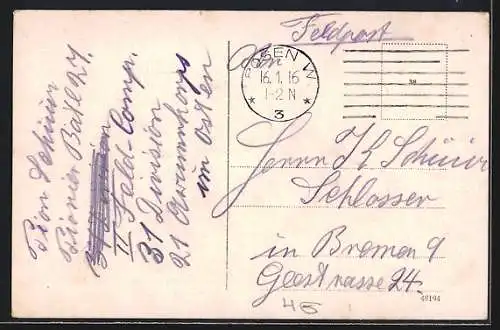 Feldpost
Abs.
POSEN W.
16.1.16
1-2 N
* 3 *
38
Herrn K Schüür
Schlosser
in Bremen 9
Geestrasse 24.
46
42194
Pion Schüür
Pionier Batl 27.
II Feld-Comp.
31 Division
21 Armeekorps
im Osten